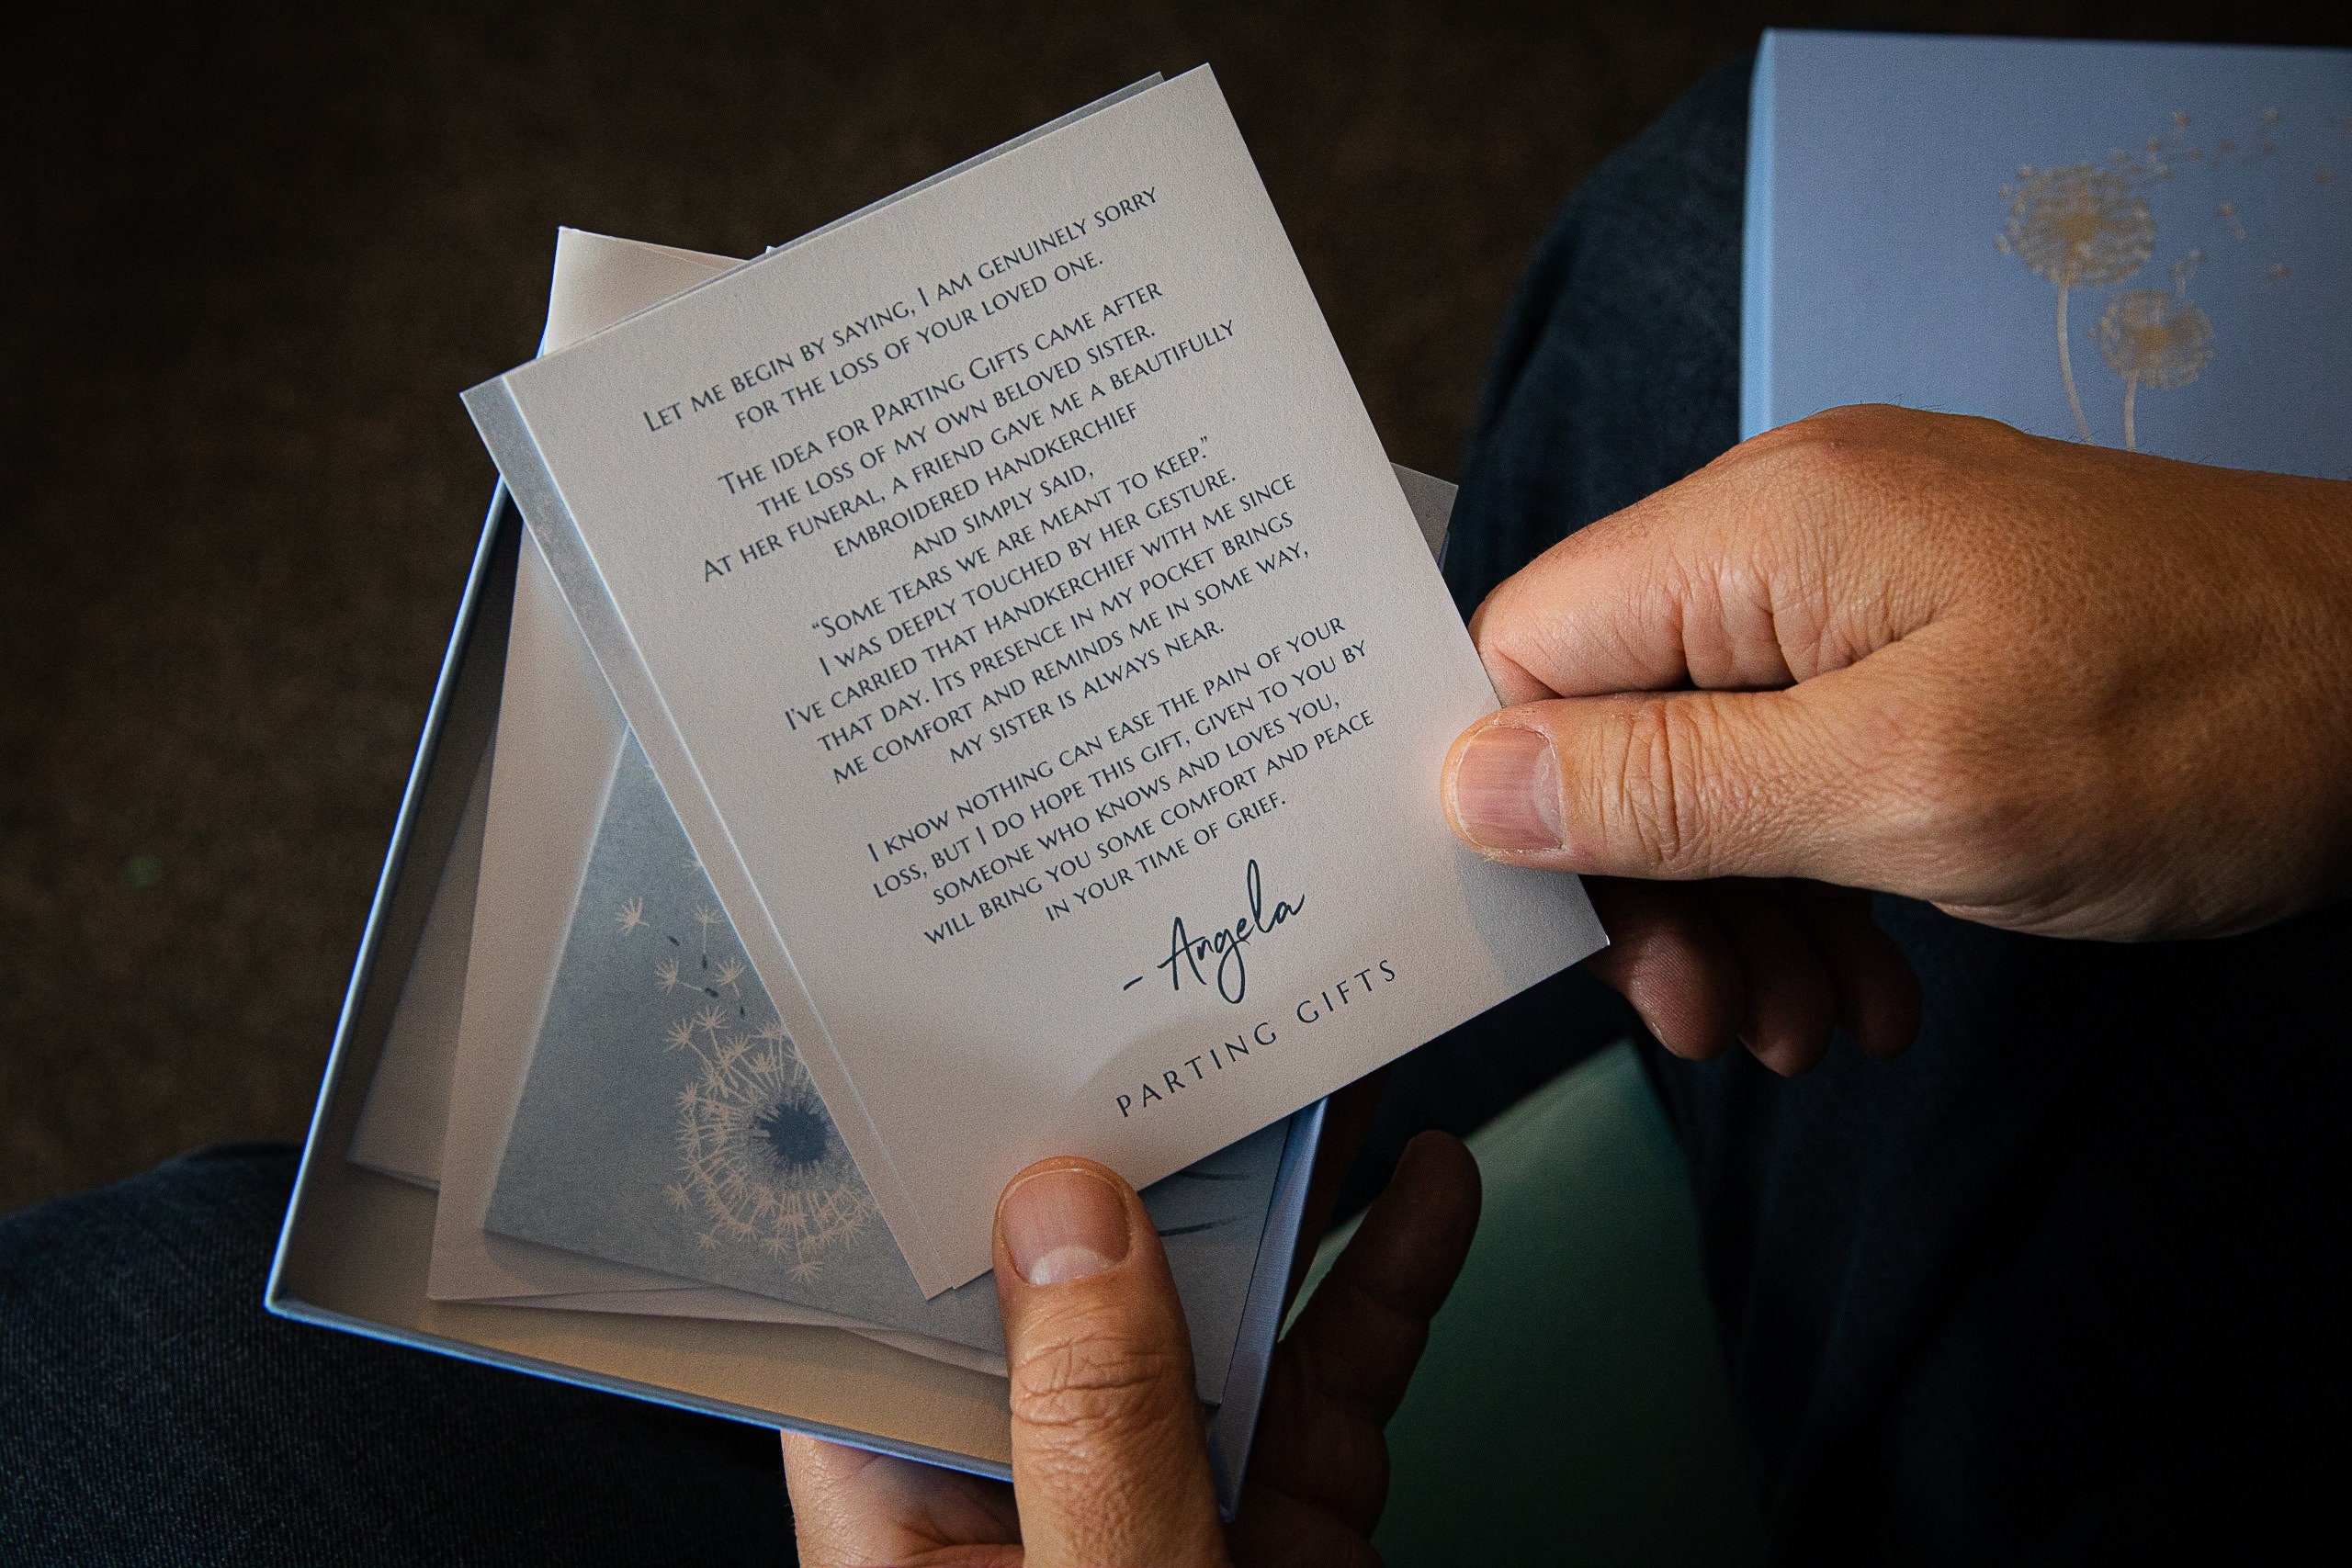 Let me begin by saying, I am genuinely sorry
for the loss of your loved one.
The idea for Parting Gifts came after
the loss of my own beloved sister.
At her funeral, a friend gave me a beautifully
embroidered handkerchief
and simply said,
“Some tears we are meant to keep.”
I was deeply touched by her gesture.
I’ve carried that handkerchief with me since
that day. Its presence in my pocket brings
me comfort and reminds me in some way,
my sister is always near.
I know nothing can ease the pain of your
loss, but I do hope this gift, given to you by
someone who knows and loves you,
will bring you some comfort and peace
in your time of grief.
– Angela
PARTING GIFTS